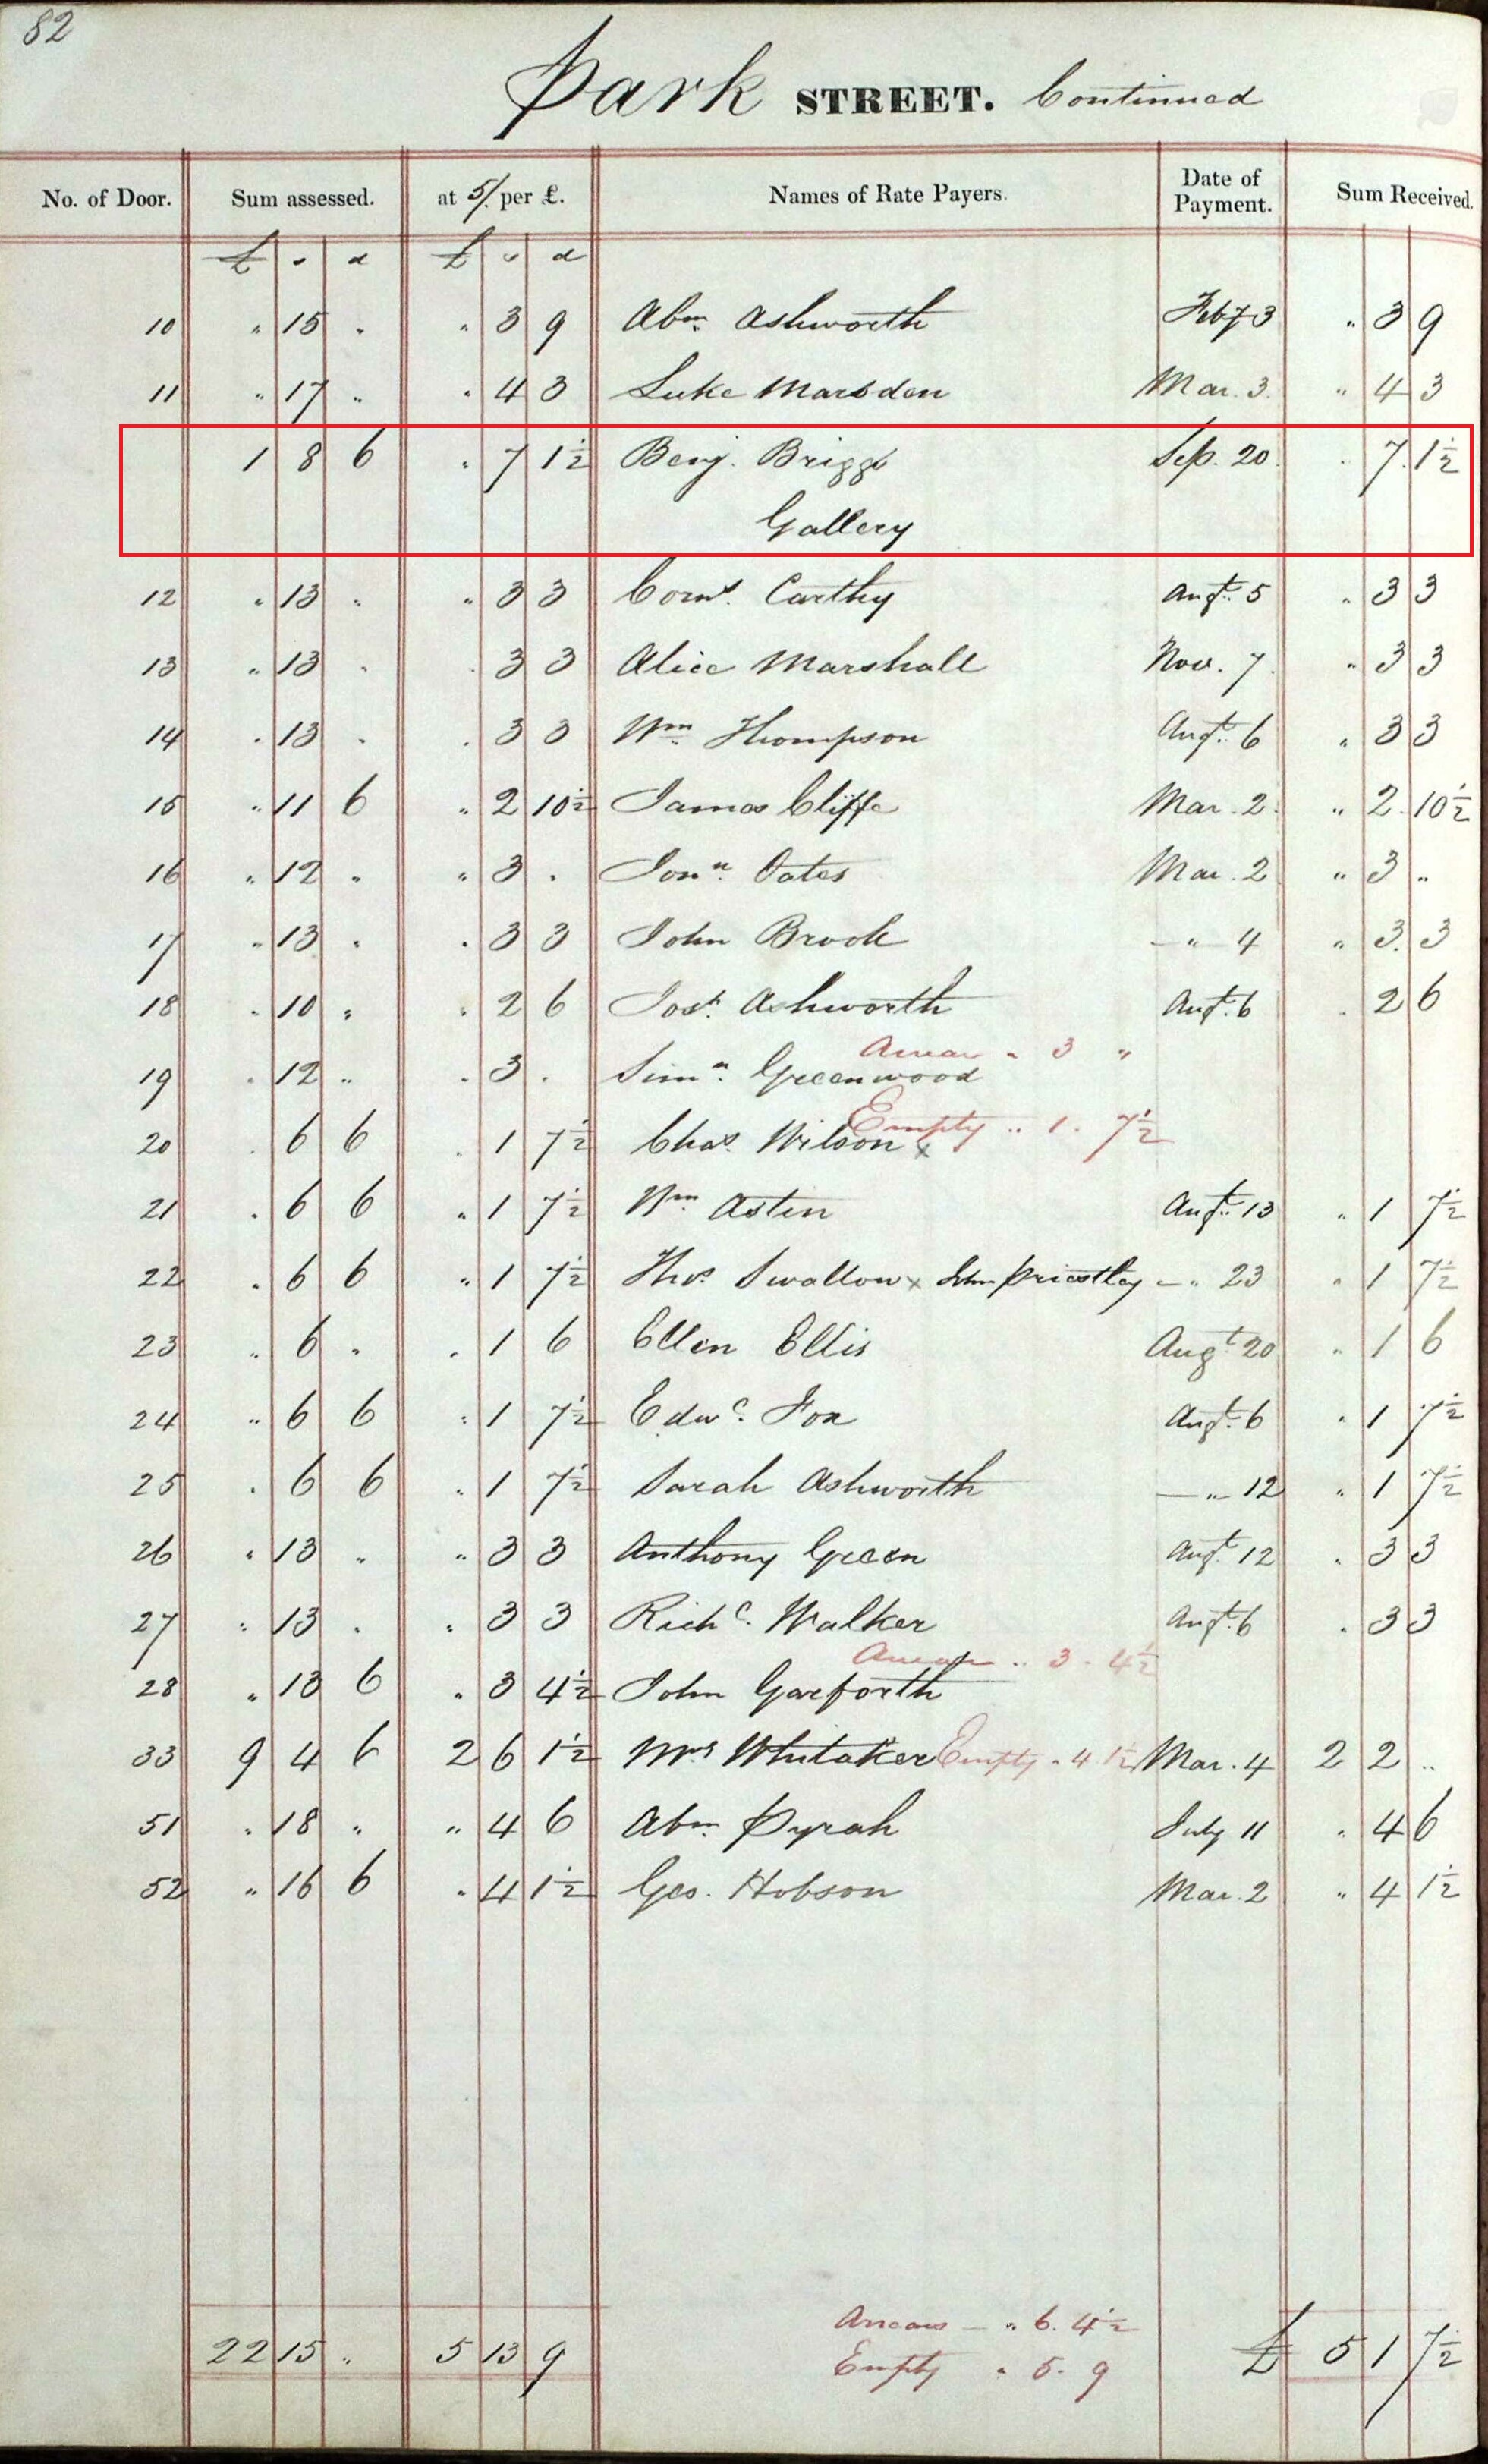 82
Park STREET. Continued
No. of Door. Sum assessed. at 5/. per £. Names of Rate Payers. Date of Payment. Sum Received.
£ s d £ s d
10 " 15 " " 3 9 Abm. Ashworth Feby 3 " 3 9
11 " 17 " " 4 3 Luke Marsden Mar. 3. " 4 3
1 8 6 " 7 1½ Benj. Briggs Sep. 20. " 7. 1½
Gallery
12 " 13 " " 3 3 Corns. Carthy Augt. 5 " 3 3
13 " 13 " " 3 3 Alice Marshall Nov. 7. " 3 3
14 " 13 " " 3 3 Wm. Thompson Augt. 6 " 3 3
15 " 11 6 " 2 10½ James Cliffe Mar. 2. " 2. 10½
16 " 12 " " 3 " Jonn. Oates Mar. 2 " 3 "
17 " 13 " " 3 3 John Brook — " 4 " 3. 3
18 " 10 " " 2 6 Josh. Ashworth Augt. 6 " 2 6
Arrear " 3 "
19 " 12 " " 3 " Simn. Greenwood
Empty " 1. 7½
20 " 6 6 " 1 7½ Chas. Wilson x
21 " 6 6 " 1 7½ Wm. Astin Augt. 13 " 1 7½
22 " 6 6 " 1 7½ Thos. Swallow x John Priestley — " 23 " 1 7½
23 " 6 " " 1 6 Ellen Ellis Augt 20 " 1 6
24 " 6 6 " 1 7½ Edwd. Fox Augt. 6 " 1 7½
25 " 6 6 " 1 7½ Sarah Ashworth — " 12 " 1 7½
26 " 13 " " 3 3 Anthony Green Augt. 12 " 3 3
27 " 13 " " 3 3 Richd. Walker Augt. 6 " 3 3
Arrear " 3. 4½
28 " 13 6 " 3 4½ John Garforth
33 9 4 6 2 6 1½ Mrs Whitaker Empty " 4 1½ Mar. 4 2 2 "
51 " 18 " " 4 6 Abm. Pyrah July 11 " 4 6
52 " 16 6 " 4 1½ Geo. Hobson Mar. 2 " 4 1½
Arrears — " 6. 4½
22 15 " 5 13 9 £ 5 1 7½
Empty " 5. 9